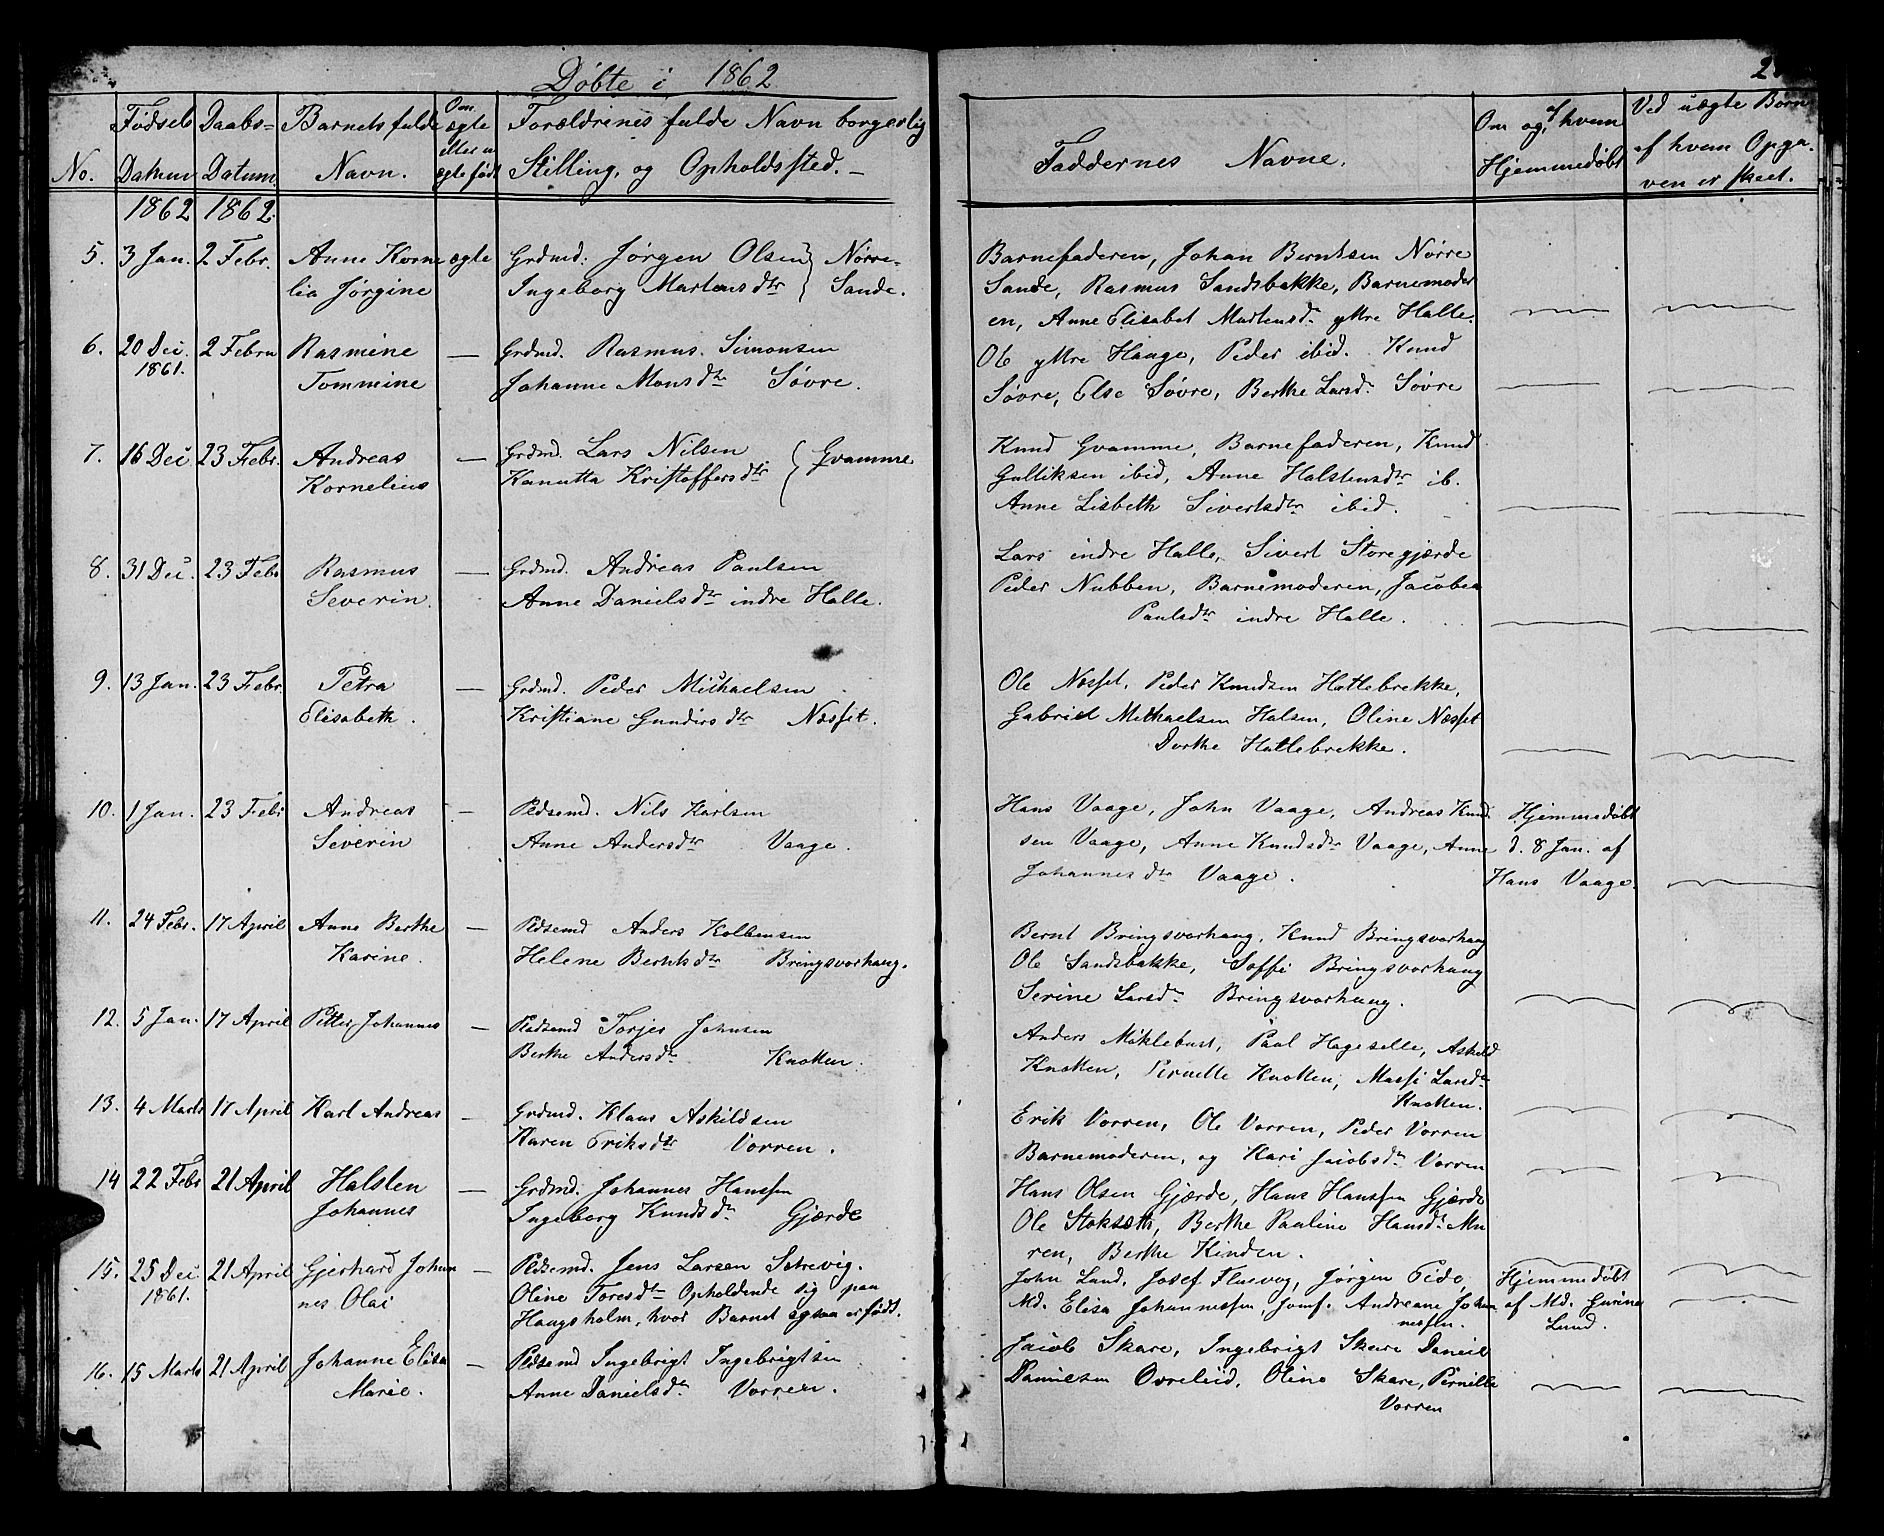 Døbte i 1862
No.
Fødsels Datum
Daabs- Datum.
Barnets fulde Navn.
Om ægte eller u ægte født
Forældrenes fulde Navn borgerlig Stilling, og Opholdssted. –
Faddernes Navne.
Om og af hvem Hjemmedøbt
Ved uægte Børn af hvem Opga- ven er skeet.
1862 1862
5. 3 Jan. 2 Febr. Anne Korne ægte Grdmd. Jørgen Olsen } Nørre-
lia Jørgine Ingeborg Martens dtr } Sande.
Barnefaderen, Johan Berntsen Nørre
Sande, Rasmus Sandsbakke, Barnemoder
en, Anne Elisabet Martensdr. yttre Halle.
6. 20 Dec. 2 Febru Rasmine — Grdmd. Rasmus Simonsen
1861. Tommine Johanne Mons dtr Søvre.
Ole yttre Haage, Peder ibid. Knud
Søvre, Else Søvre, Berthe Larsd. Søvre
7. 16 Dec 23 Febr. Andreas — Grdmd. Lars Nilsen { Gvamme
Kornelius Kanutta Kristoffersdtr
Knud Gvamme, Barnefaderen, Knud
Gulliksen ibid, Anne Halstensdtr ib.
Anne Lisbeth Sivertsdtr ibid.
8. 31 Dec. 23 Febr Rasmus — Grdmd. Andreas Paulsen
Severin. Anne Daniels dtr indre Halle.
Lars indre Halle, Sivert Storegjærde
Peder Nubben, Barnemoderen, Jacobea
Paulsdtr indre Halle.
9. 13 Jan. 23 Febr. Petra — Grdmd. Peder Michaelsen
Elisabeth. Kristiane Gunders dtr Næsset.
Ole Næsset, Peder Knudsen Hattebrekke,
Gabriel Michaelsen Halsen, Oline Næsset
Dorthe Hattebrekke.
10. 1 Jan. 23 Febr Andreas — Pldsemd. Nils Karlsen
Severin Anne Andersdtr Vaage.
Hans Vaage, John Vaage, Andreas Knud
sen Vaage, Anne Knudsdtr Vaage, Anne
Johannes dtr Vaage.
Hjemmedøbt
d. 8 Jan. af
Hans Vaage.
11. 24 Febr. 17 April Anne Berthe — Pldsemd Anders Kolbensen
Karine. Helene Berntsdtr Bringsvorhaug.
Bernt Bringsvorhaug, Knud Bringsvorhaug
Ole Sandsbakke, Soffi Bringsvorhaug
Serine Larsdr. Bringsvorhaug.
12. 5 Jan. 17 April Petter Johannes — Pldsemd Torjer Johnsen
Berthe Andersdr. Knotten.
Anders Miklebust, Paul Hageselle, Askild
Knotten, Pernelle Knotten, Massi Larsdr.
Knotten.
13. 4 Marts 17 April Karl Andreas — Grdmd. Klaus Askildsen
Karen Eriksdtr Vorren.
Erik Vorren, Ole Vorren, Peder Vorren
Barnemoderen, og Kari Jacobsdr. Vorren
14 22 Febr 21 April Halsten — Grdmd. Johannes Hanssen
Johannes Ingeborg Knudsdr. Gjærde
Hans Olsen Gjærde, Hans Hanssen Gjærde
Ole Stokseth, Berthe Pauline Hansdr. Mu
ren, Berthe Kinden.
15. 25 Dec 21 April Gjerhard Johan — Pldsemd. Jens Larsen Sætrevig.
1861. nes Olai Oline Toresdtr Opholdende sig paa
Haugsholm, hvor Barnet ogsaa er født.
John Lund, Josef Fluevog, Jørgen Eide
Md. Elisa Johannessen, Jomf. Andreane Johan
nessen.
Hjemmedøbt
af Md. Gurine
Lund.
16. 15 Marts 21 April Johanne Elisa — Pldsemd Ingebrigt Ingebrigtsen
Marie. Anne Danielsdr. Vorren.
Jacob Skare, Ingebrigt Skare Daniel
Danielsen Ovreleid, Oline Skare, Pernille
Vorren